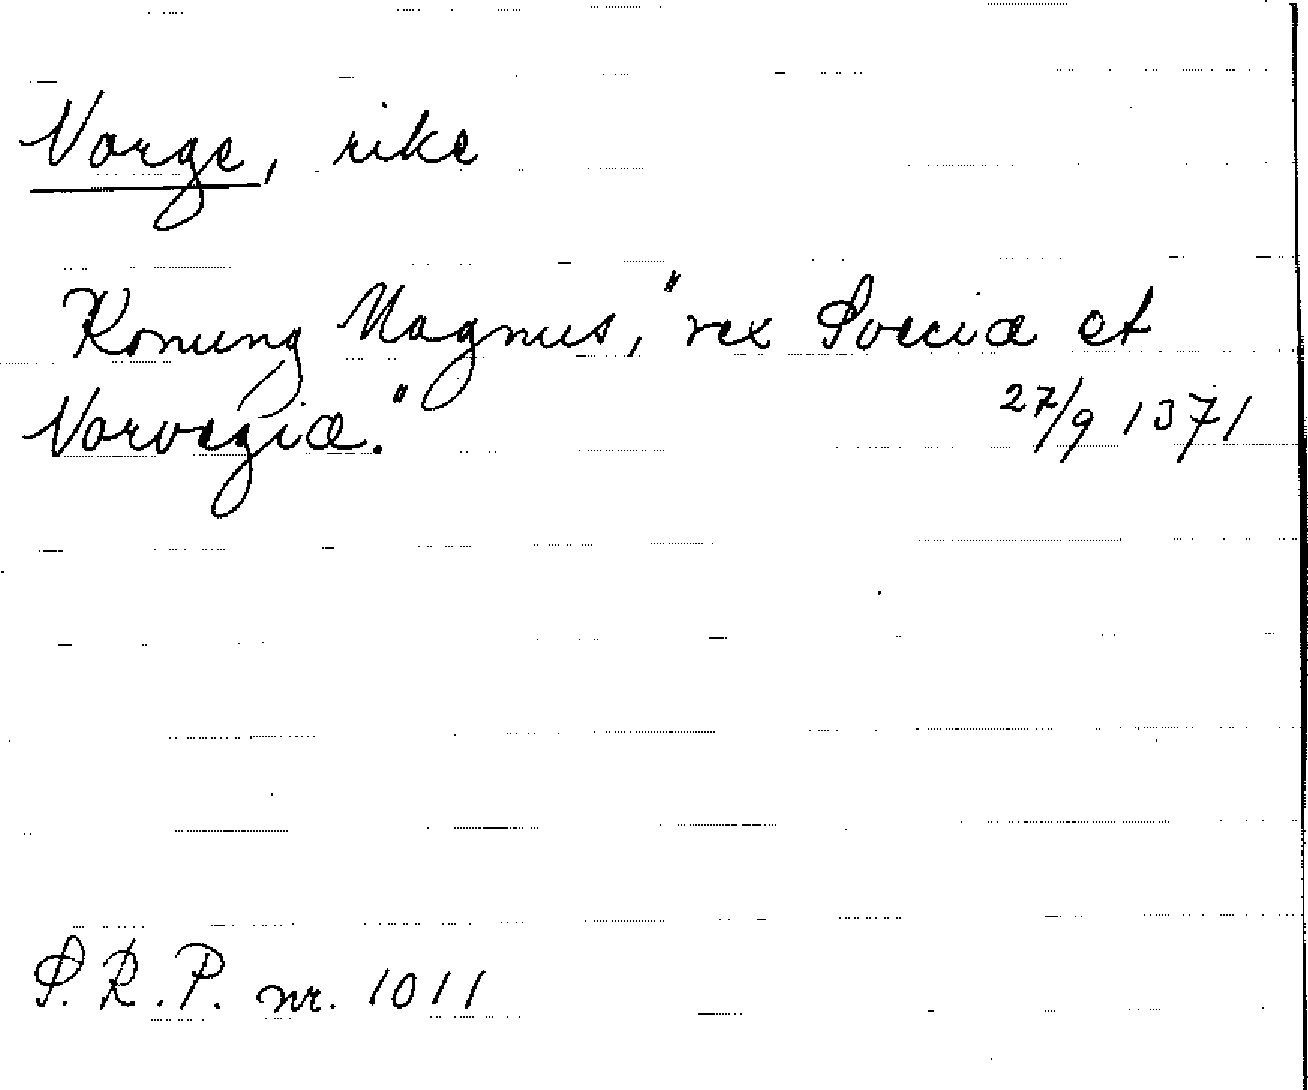 Norge, rike
Konung Magnus, "rex Sveciæ et
Norvegiæ."
27/9 1371
S.R.P. nr. 1011